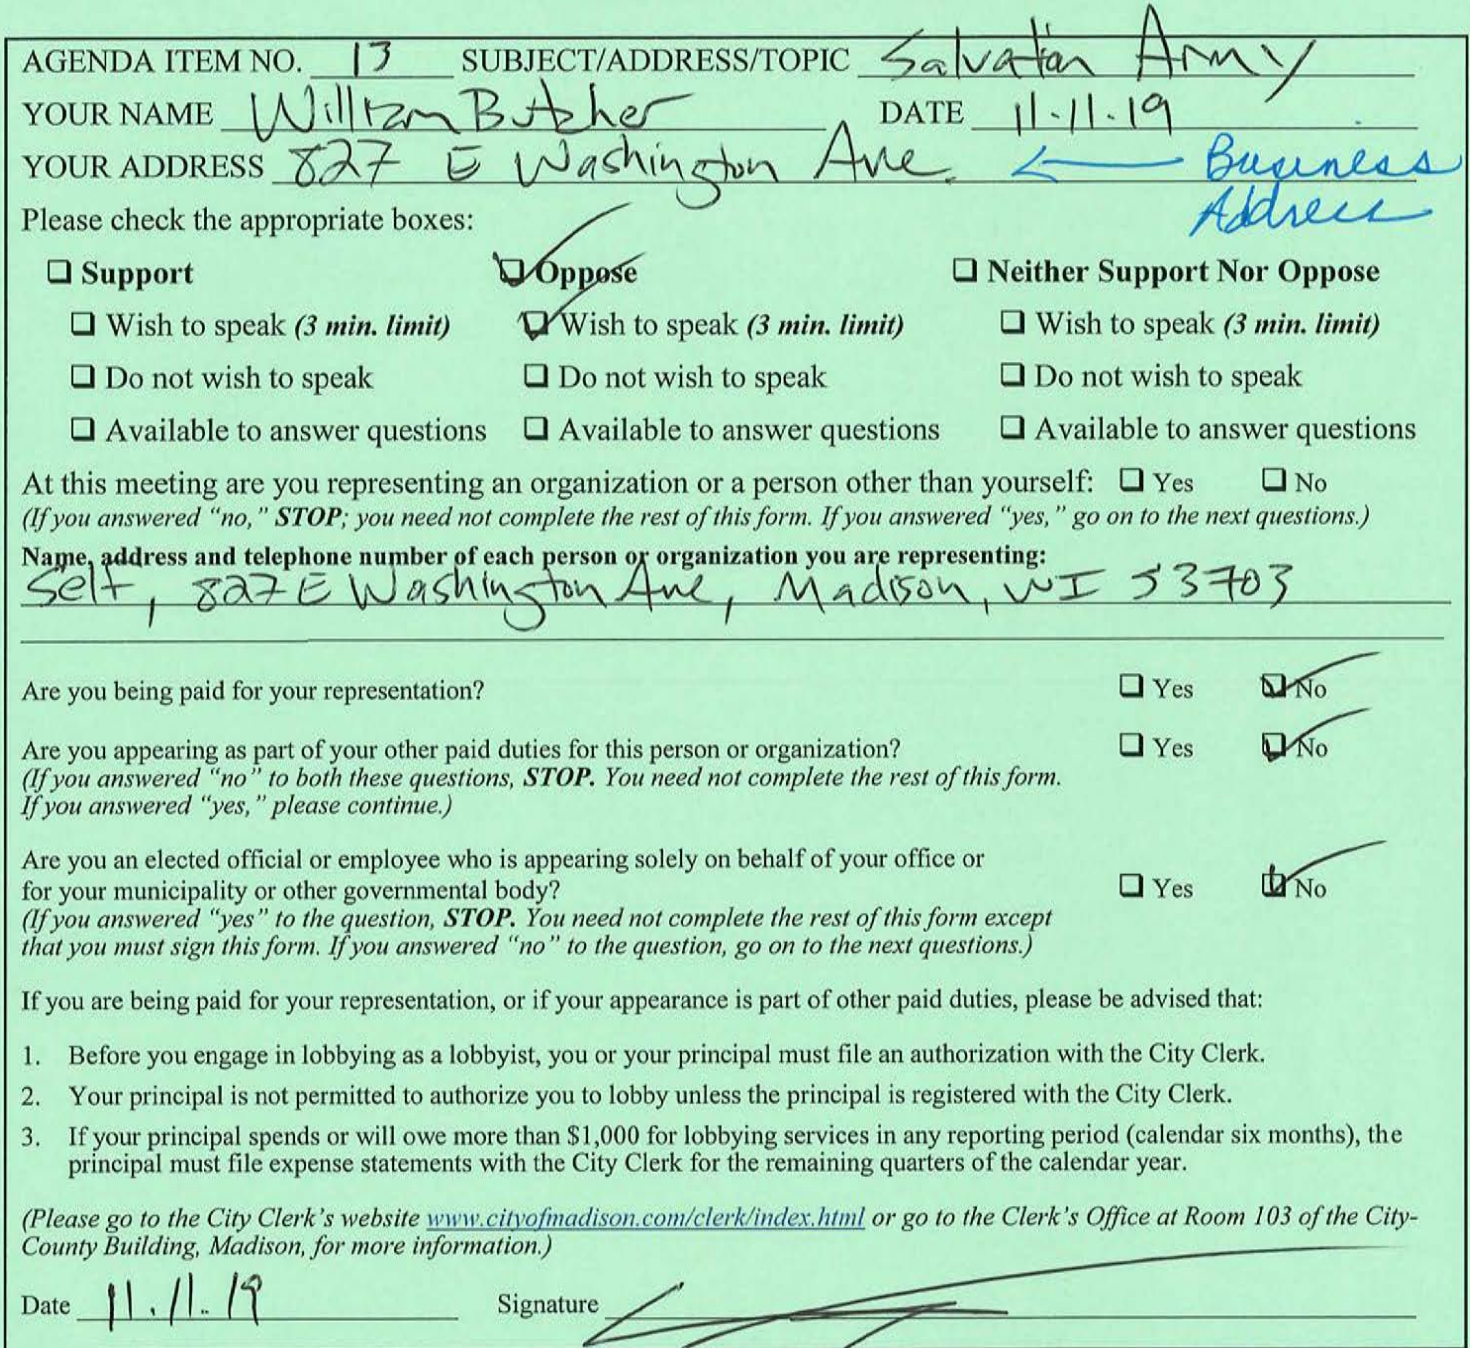 AGENDA ITEM NO. 13 SUBJECT/ADDRESS/TOPIC Salvation Army
YOUR NAME William Butcher DATE 11.11.19
YOUR ADDRESS 827 E Washington Ave. ← Business
Address
Please check the appropriate boxes:
☐ Support ☑ Oppose ☐ Neither Support Nor Oppose
☐ Wish to speak (3 min. limit) ☑ Wish to speak (3 min. limit) ☐ Wish to speak (3 min. limit)
☐ Do not wish to speak ☐ Do not wish to speak ☐ Do not wish to speak
☐ Available to answer questions ☐ Available to answer questions ☐ Available to answer questions
At this meeting are you representing an organization or a person other than yourself: ☐ Yes ☐ No
(If you answered “no,” STOP; you need not complete the rest of this form. If you answered “yes,” go on to the next questions.)
Name, address and telephone number of each person or organization you are representing:
Self, 827 E Washington Ave, Madison, WI 53703
Are you being paid for your representation? ☐ Yes ☑ No
Are you appearing as part of your other paid duties for this person or organization? ☐ Yes ☑ No
(If you answered “no” to both these questions, STOP. You need not complete the rest of this form.
If you answered “yes,” please continue.)
Are you an elected official or employee who is appearing solely on behalf of your office or
for your municipality or other governmental body? ☐ Yes ☑ No
(If you answered “yes” to the question, STOP. You need not complete the rest of this form except
that you must sign this form. If you answered “no” to the question, go on to the next questions.)
If you are being paid for your representation, or if your appearance is part of other paid duties, please be advised that:
1. Before you engage in lobbying as a lobbyist, you or your principal must file an authorization with the City Clerk.
2. Your principal is not permitted to authorize you to lobby unless the principal is registered with the City Clerk.
3. If your principal spends or will owe more than $1,000 for lobbying services in any reporting period (calendar six months), the
principal must file expense statements with the City Clerk for the remaining quarters of the calendar year.
(Please go to the City Clerk’s website www.cityofmadison.com/clerk/index.html or go to the Clerk’s Office at Room 103 of the City-
County Building, Madison, for more information.)
Date 11.11.19 Signature